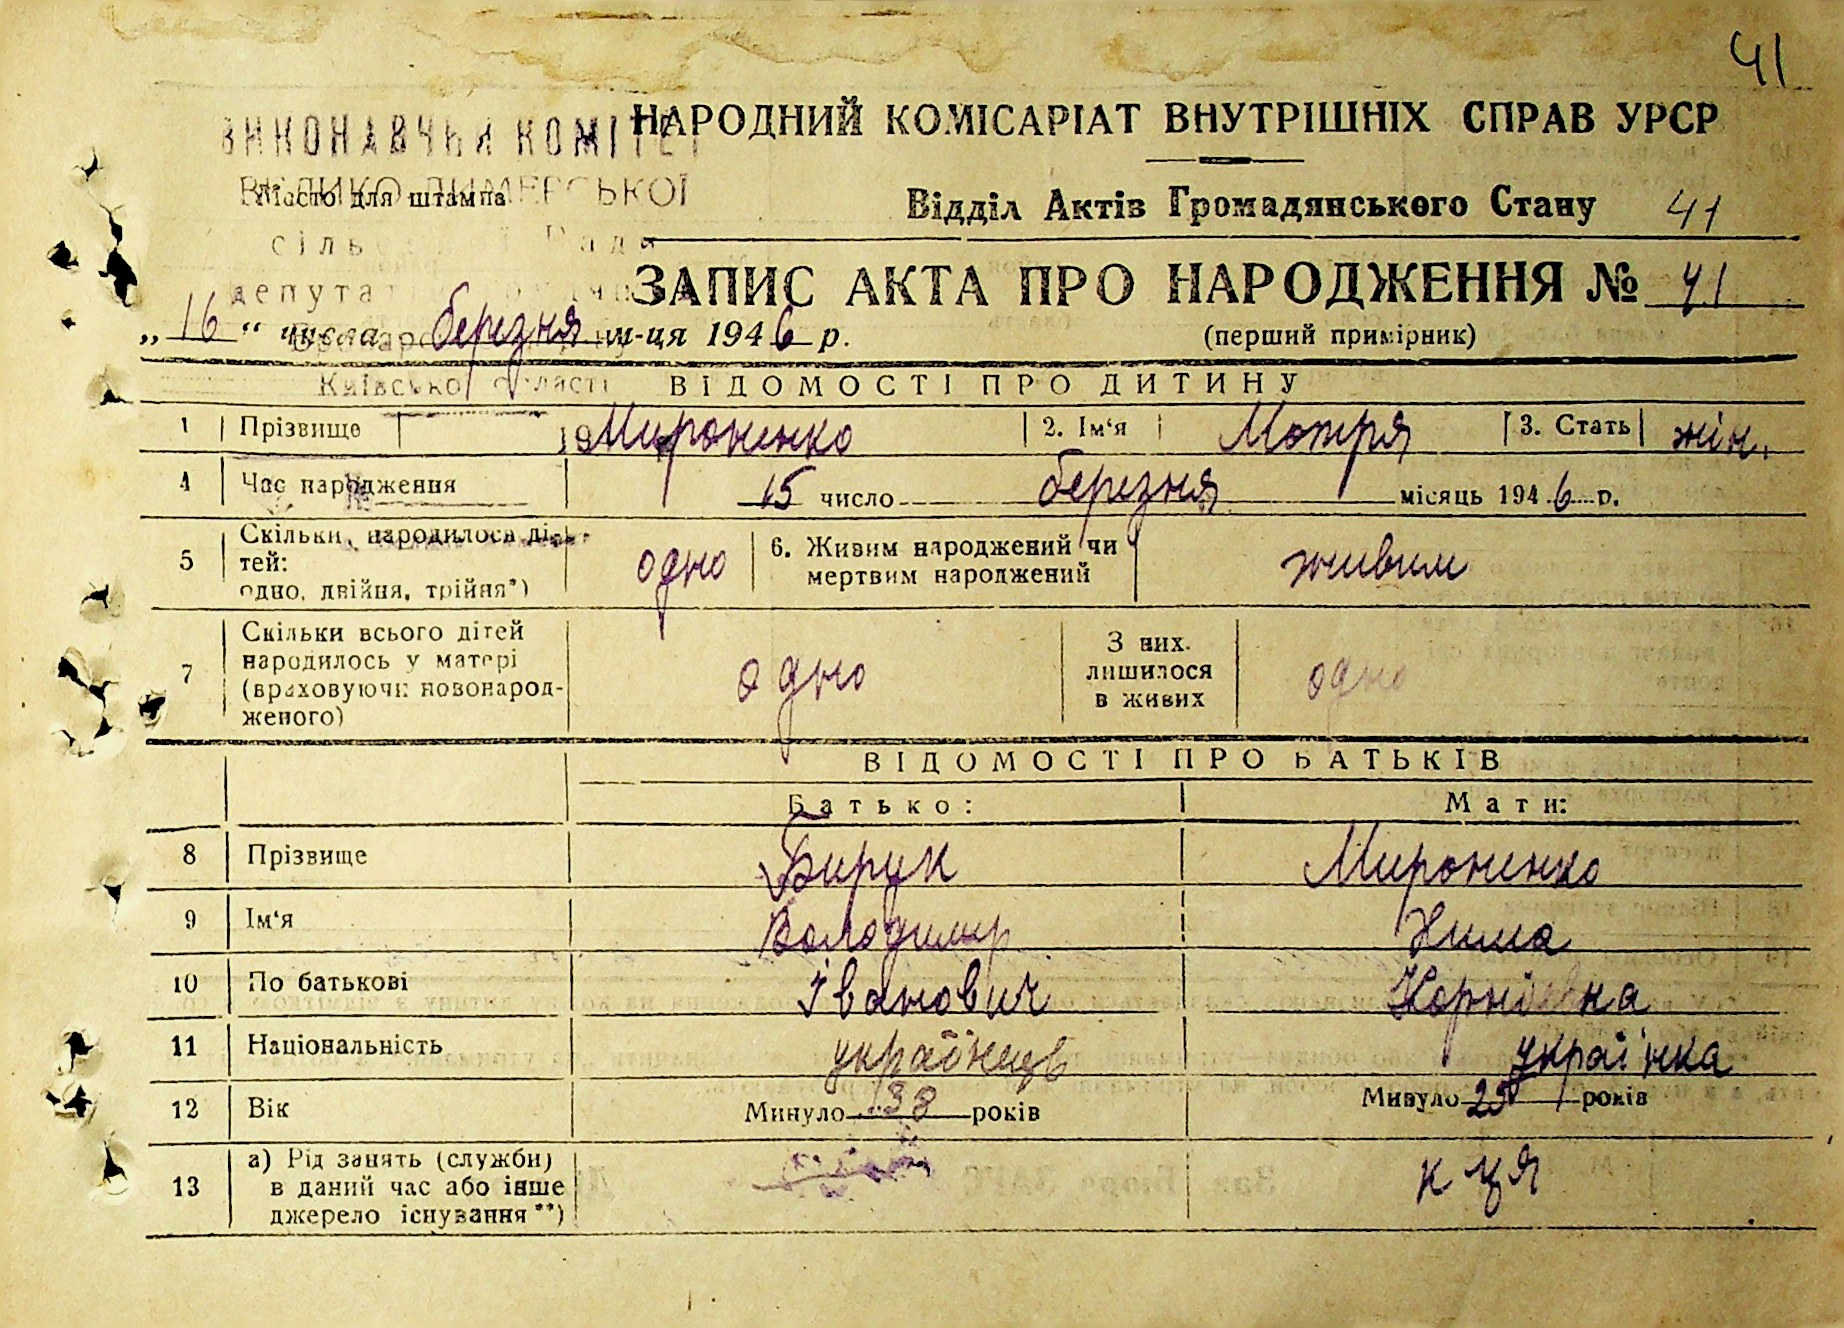 41
ВИКОНАВЧИЙ КОМІТЕТ
НАРОДНИЙ КОМІСАРІАТ ВНУТРІШНІХ СПРАВ УРСР
ВЕЛИКО ДИМЕРСЬКОЇ
Місто для штампа
Відділ Актів Громадянського Стану 41
депута
ЗАПИС АКТА ПРО НАРОДЖЕННЯ № 41
„16“ числа березня м-ця 1946 р.
(перший примірник)
Київської області
ВІДОМОСТІ ПРО ДИТИНУ
1 Прізвище Мироненко 2. Ім‘я Мотря 3. Стать жін.
4 Час народження 15 число березня місяць 1946 р.
5 Скільки народилося ді-
тей:
одно, двійня, трійня*) одно
6. Живим народжений чи
мертвим народжений живим
7 Скільки всього дітей
народилось у матері
(враховуючи новонарод-
женого) одно
З них
лишилося
в живих одно
ВІДОМОСТІ ПРО БАТЬКІВ
Батько: Мати:
8 Прізвище Бирук Мироненко
9 Ім‘я Володимир
10 По батькові Іванович Корніївна
11 Національність українець українка
12 Вік Минуло 38 років Минуло 25 років
13 а) Рід занять (служби)
в даний час або інше
джерело існування**) к ця